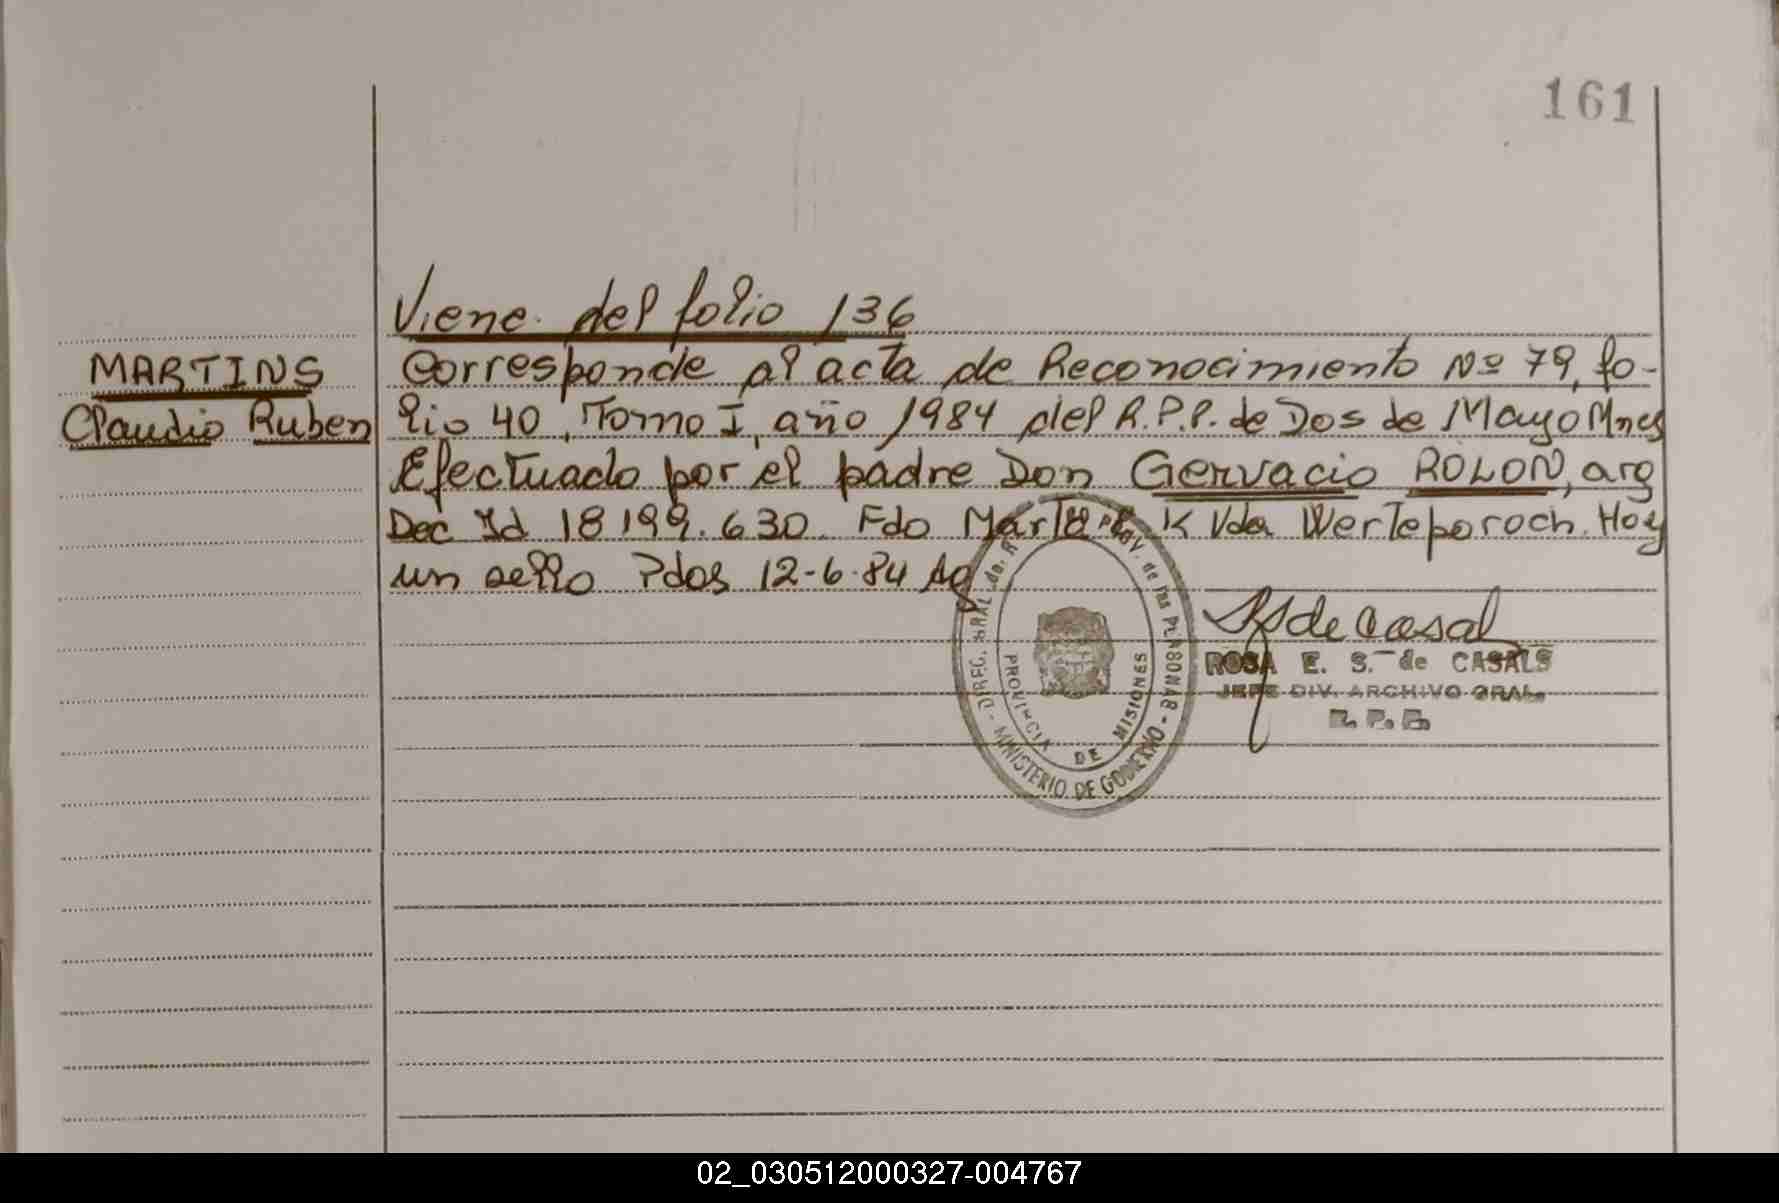 161
Viene del folio 136
MARTINS
Claudio Ruben
Corresponde al acta de Reconocimiento Nº 79, fo-
lio 40, Tomo I, año 1984 del R.P.P. de Dos de Mayo Mnes
Efectuado por el padre Don Gervacio ROLON, arg
Doc Id 18 199.630. Fdo Marta K Vda Werleporoch. Hay
un sello Pdos 12-6-84 Ag
S de Casal
ROSA E. S. de CASALS
JEFE DIV. ARCHIVO GRAL.
R. P. P.
DIREC. GRAL. de las PERSONAS - MINISTERIO DE GOBIERNO
PROVINCIA DE MISIONES
02_030512000327-004767